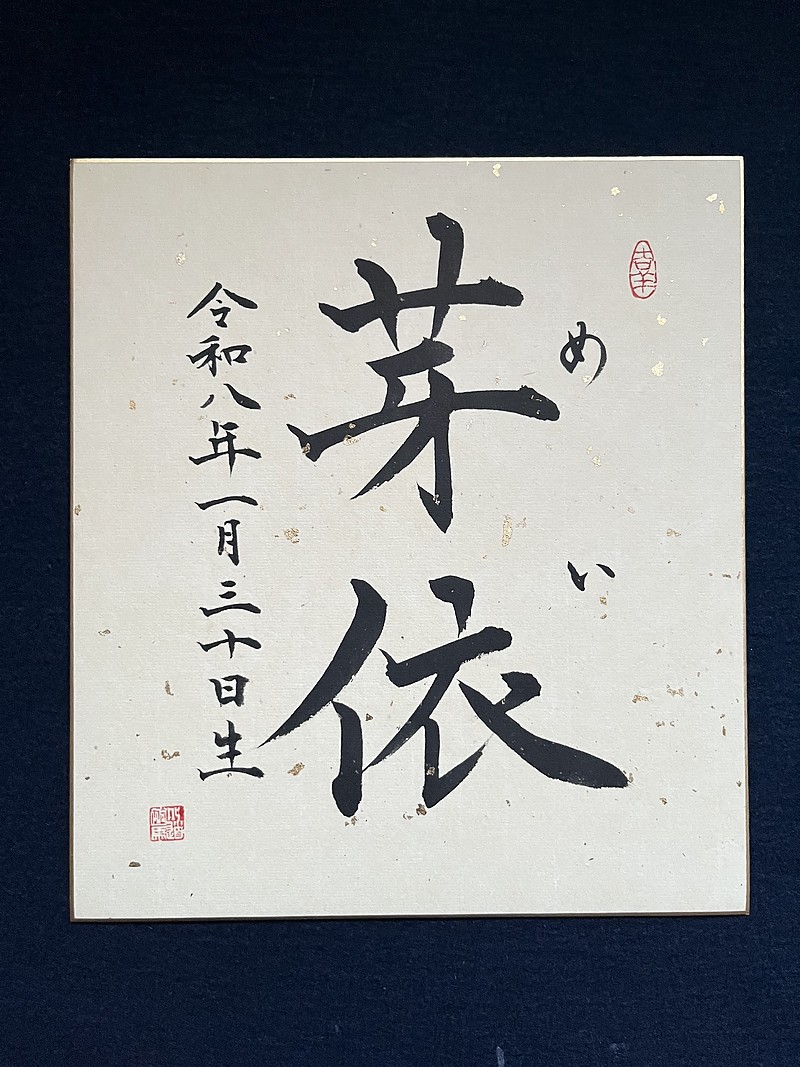 めい
芽依
令和八年一月三十日生